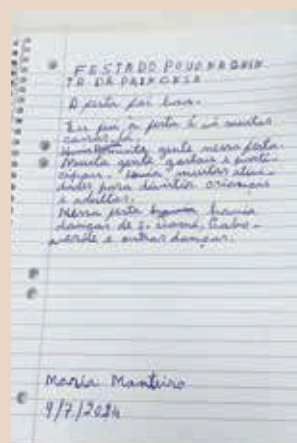 FESTA DO POVO NA QUIN
TA DA PRINCESA
A festa foi boa.
Eu fui a festa e vi muitas
carros lá.
gente nessa festa.
Muita gente gostou e parti-
cipou. Havia muitas ativi-
dades para divertir crianças
e adultos.
Nessa festa havia
danças de S. Tomé, Cabo-
verde e outras danças.
Maria Monteiro
9/7/2024